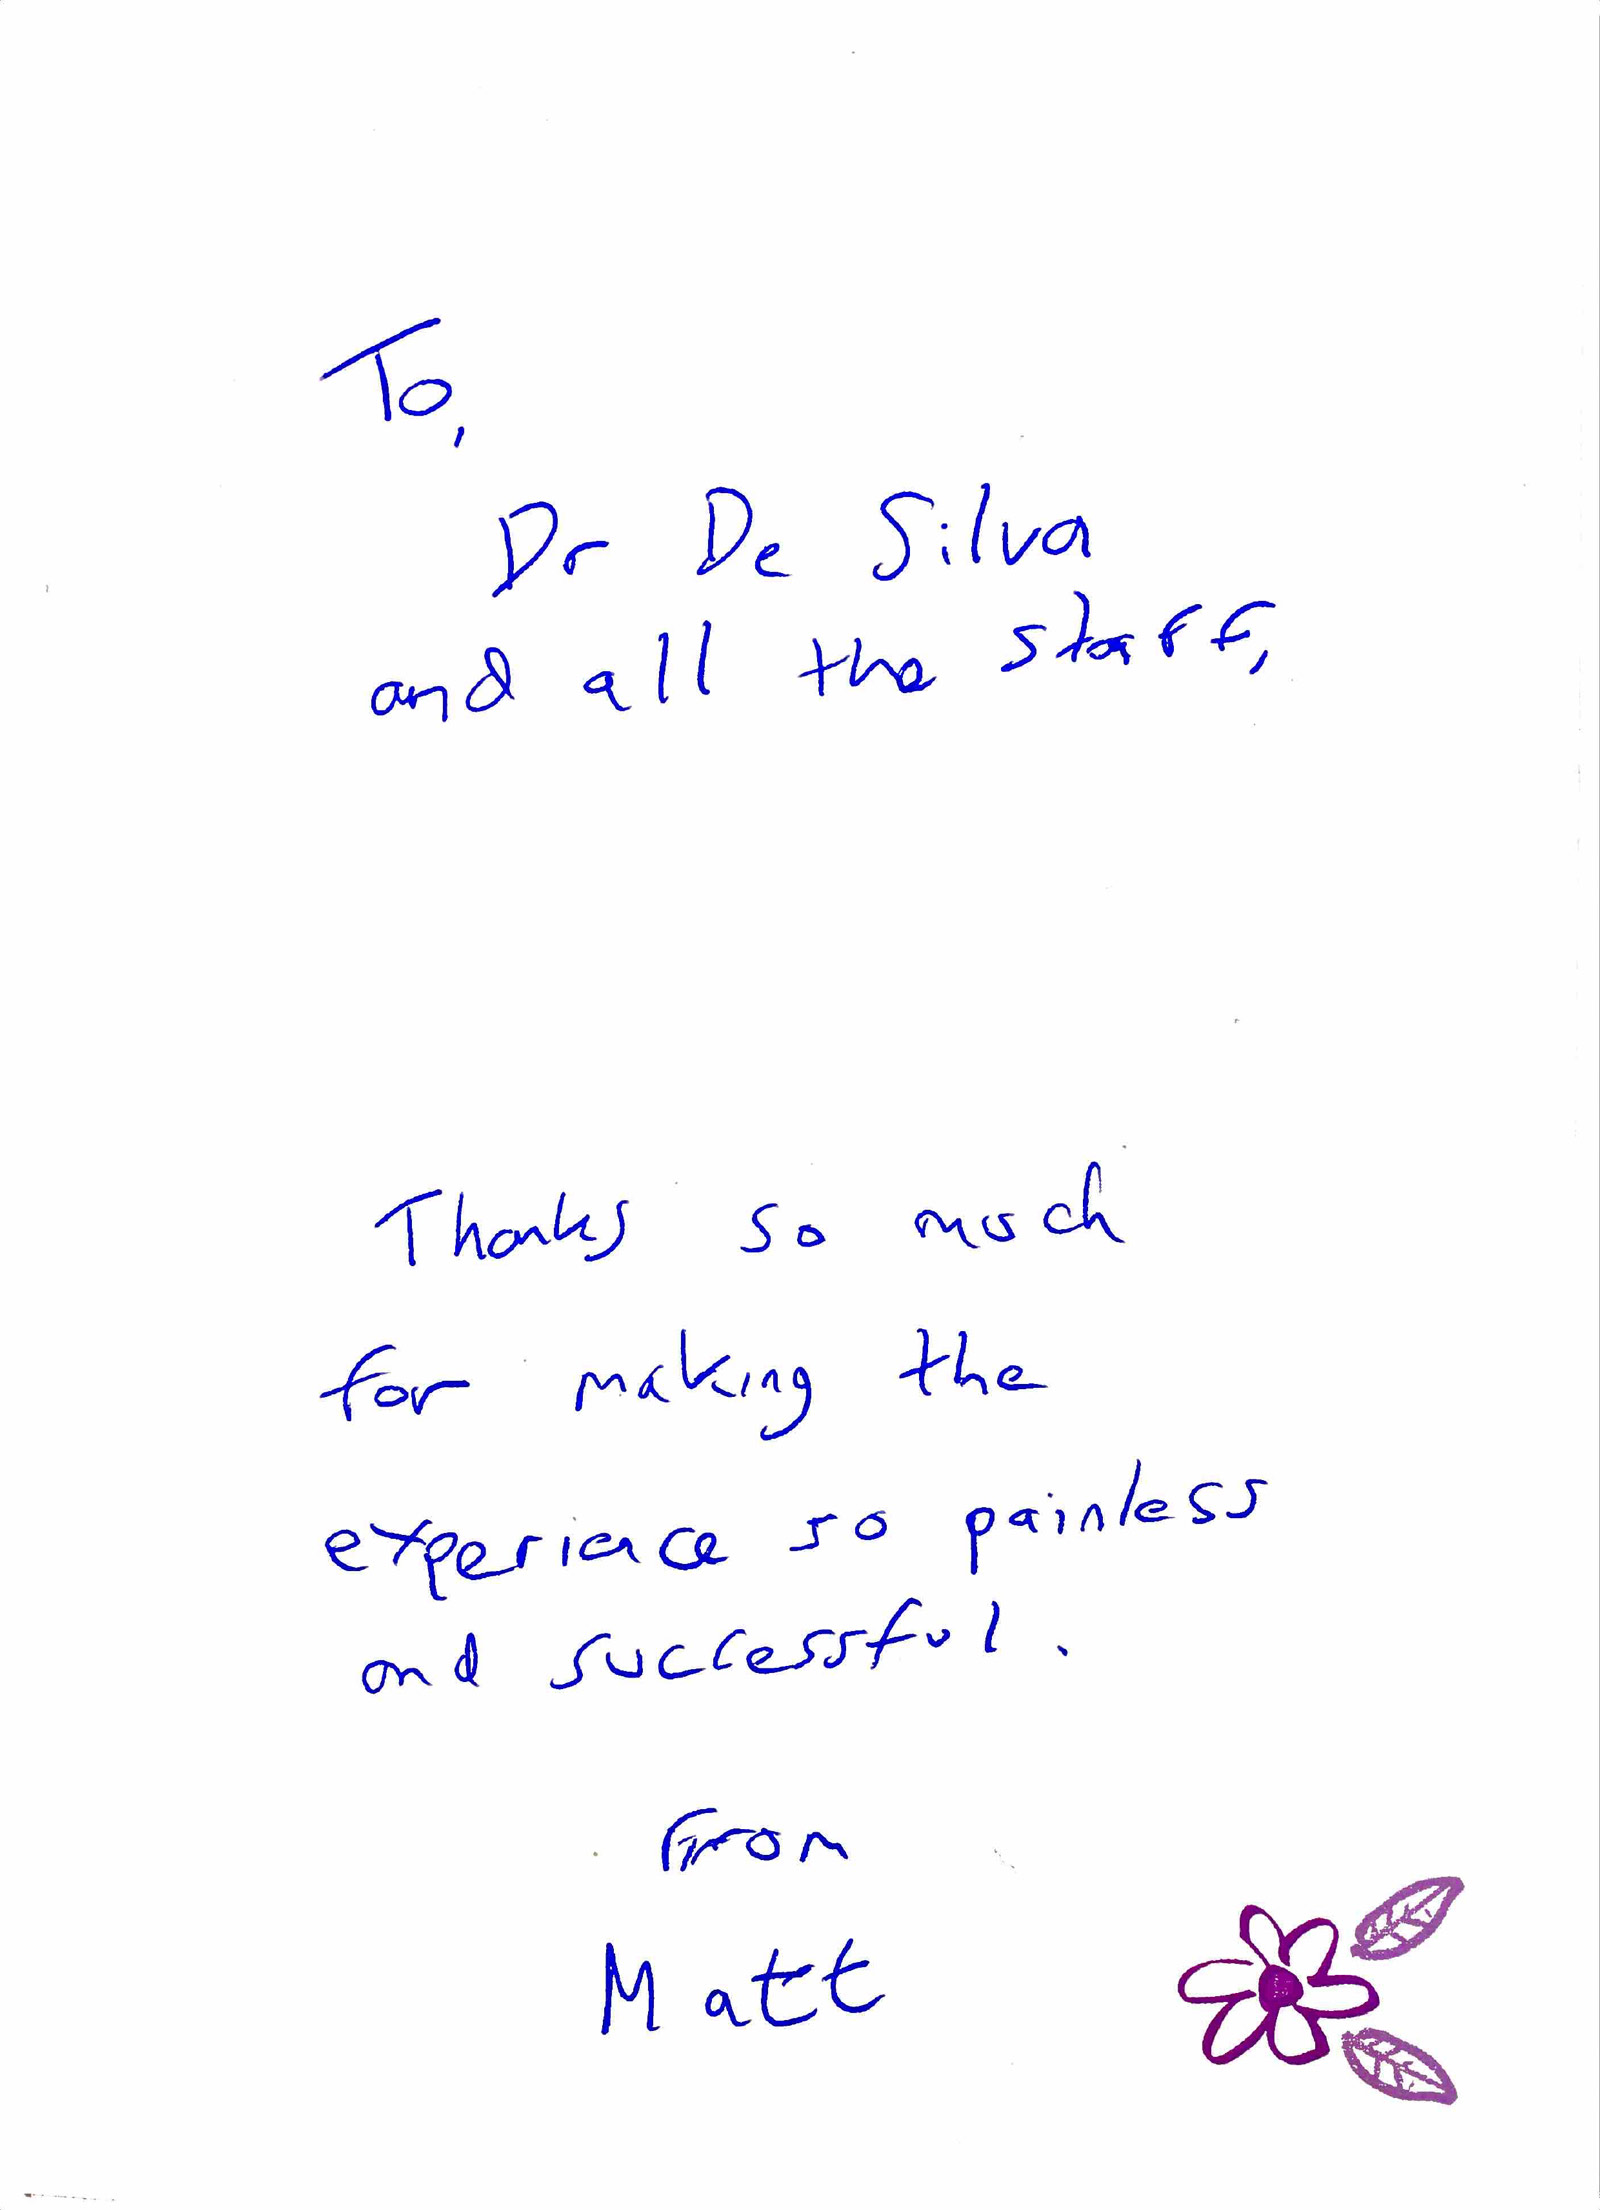 To,
Dr De Silva
and all the staff,
Thanks so much
for making the
experience so painless
and successful.
From
Matt